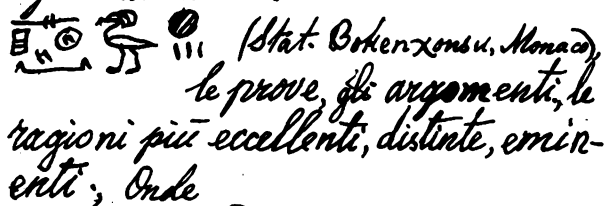 (Stat. Bokenxonsu, Monaco),
le prove, gli argomenti, le
ragioni più eccellenti, distinte, emin-
enti; Onde